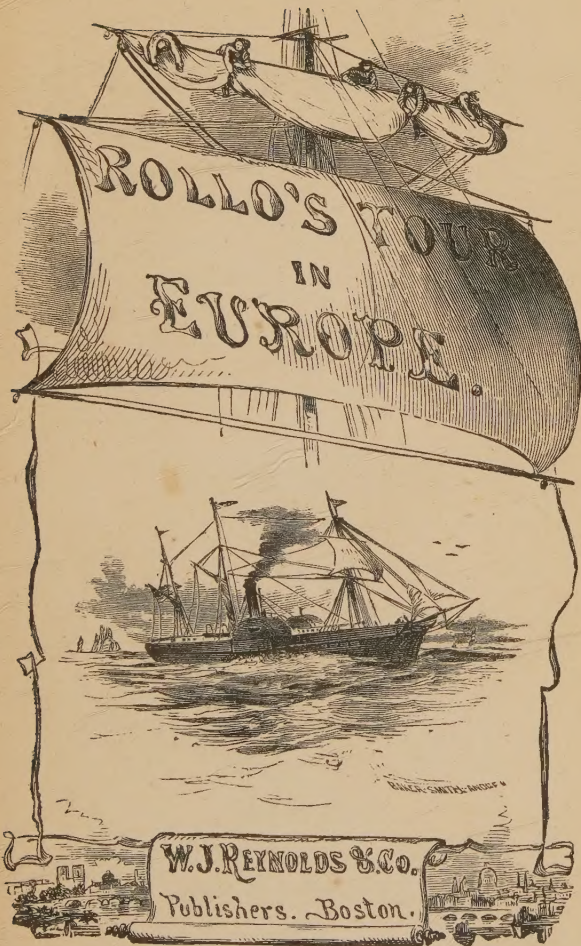 ROLLO'S TOUR
IN
EUROPE.
BAKER-SMITH-ANDREW
W.J. REYNOLDS & Co.
Publishers. Boston.